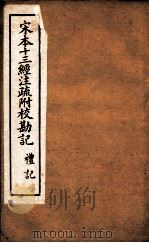 宋本十三經注疏附校勘記
禮記
mtoou.info